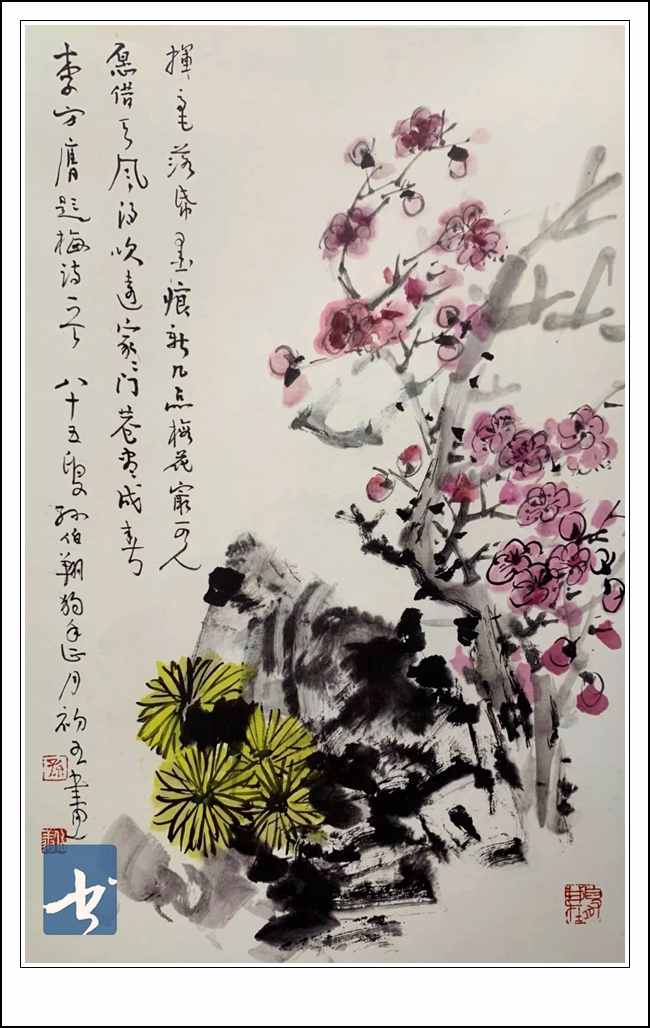 揮毫落紙墨痕新几点梅花最可人
愿借天风得吹遠家〻门巷尽成春
李方膺题梅诗一首 八十五叟孙伯翔狗年正月初五畫
孫
书